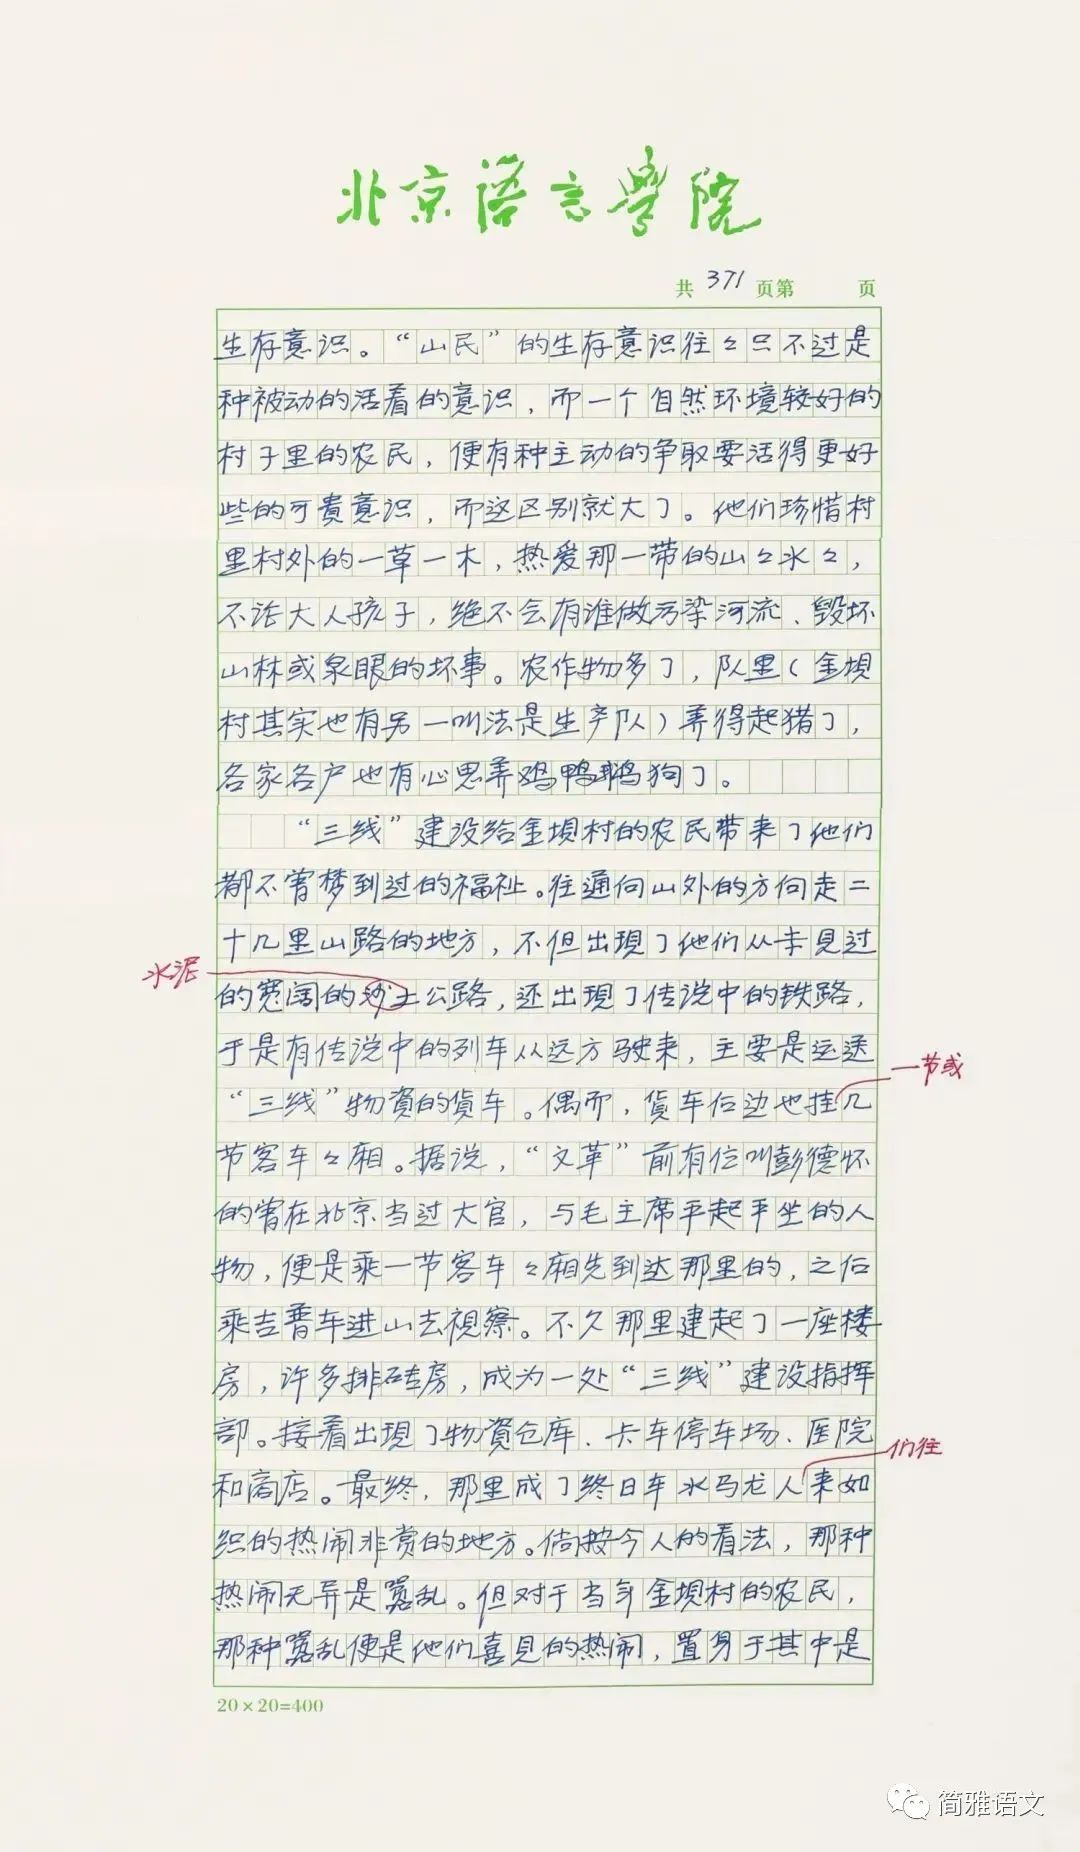 北京语言學院
共 371 页第 页
生存意识。“山民”的生存意识往々只不过是
种被动的活着的意识，而一个自然环境较好的
村子里的农民，便有种主动的争取要活得更好
些的可贵意识，而这区别就大了。他们珍惜村
里村外的一草一木，热爱那一带的山々水々，
不论大人孩子，绝不会有谁做污染河流、毁坏
山林或泉眼的坏事。农作物多了，队里（金坝
村其实也有另一叫法是生产队）养得起猪了，
各家各户也有心思养鸡鸭鹅狗了。
“三线”建设给金坝村的农民带来了他们
都不曾梦到过的福祉。往通向山外的方向走二
十几里山路的地方，不但出現了他们从未見过
水泥
的宽阔的沙土公路，还出現了传说中的铁路，
于是有传说中的列车从远方驶来，主要是运送
一节或
“三线”物資的货车。偶而，貨车后边也挂几
节客车々厢。据说，“文革”前有位叫彭德怀
的曾在北京当过大官，与毛主席平起平坐的人
物，便是乘一节客车々厢先到达那里的，之后
乘吉普车进山去視察。不久那里建起了一座楼
房，许多排砖房，成为一处“三线”建设指挥
部。接着出現了物資仓库、卡车停车场、医院
们往
和商店。最终，那里成了终日车水马龙人来如
织的热闹非赏的地方。倘按今人的看法，那种
热闹无异是嚣乱。但对于当年金坝村的农民，
那种嚣乱便是他们喜見的热闹，置身于其中是
20×20=400
简雅语文